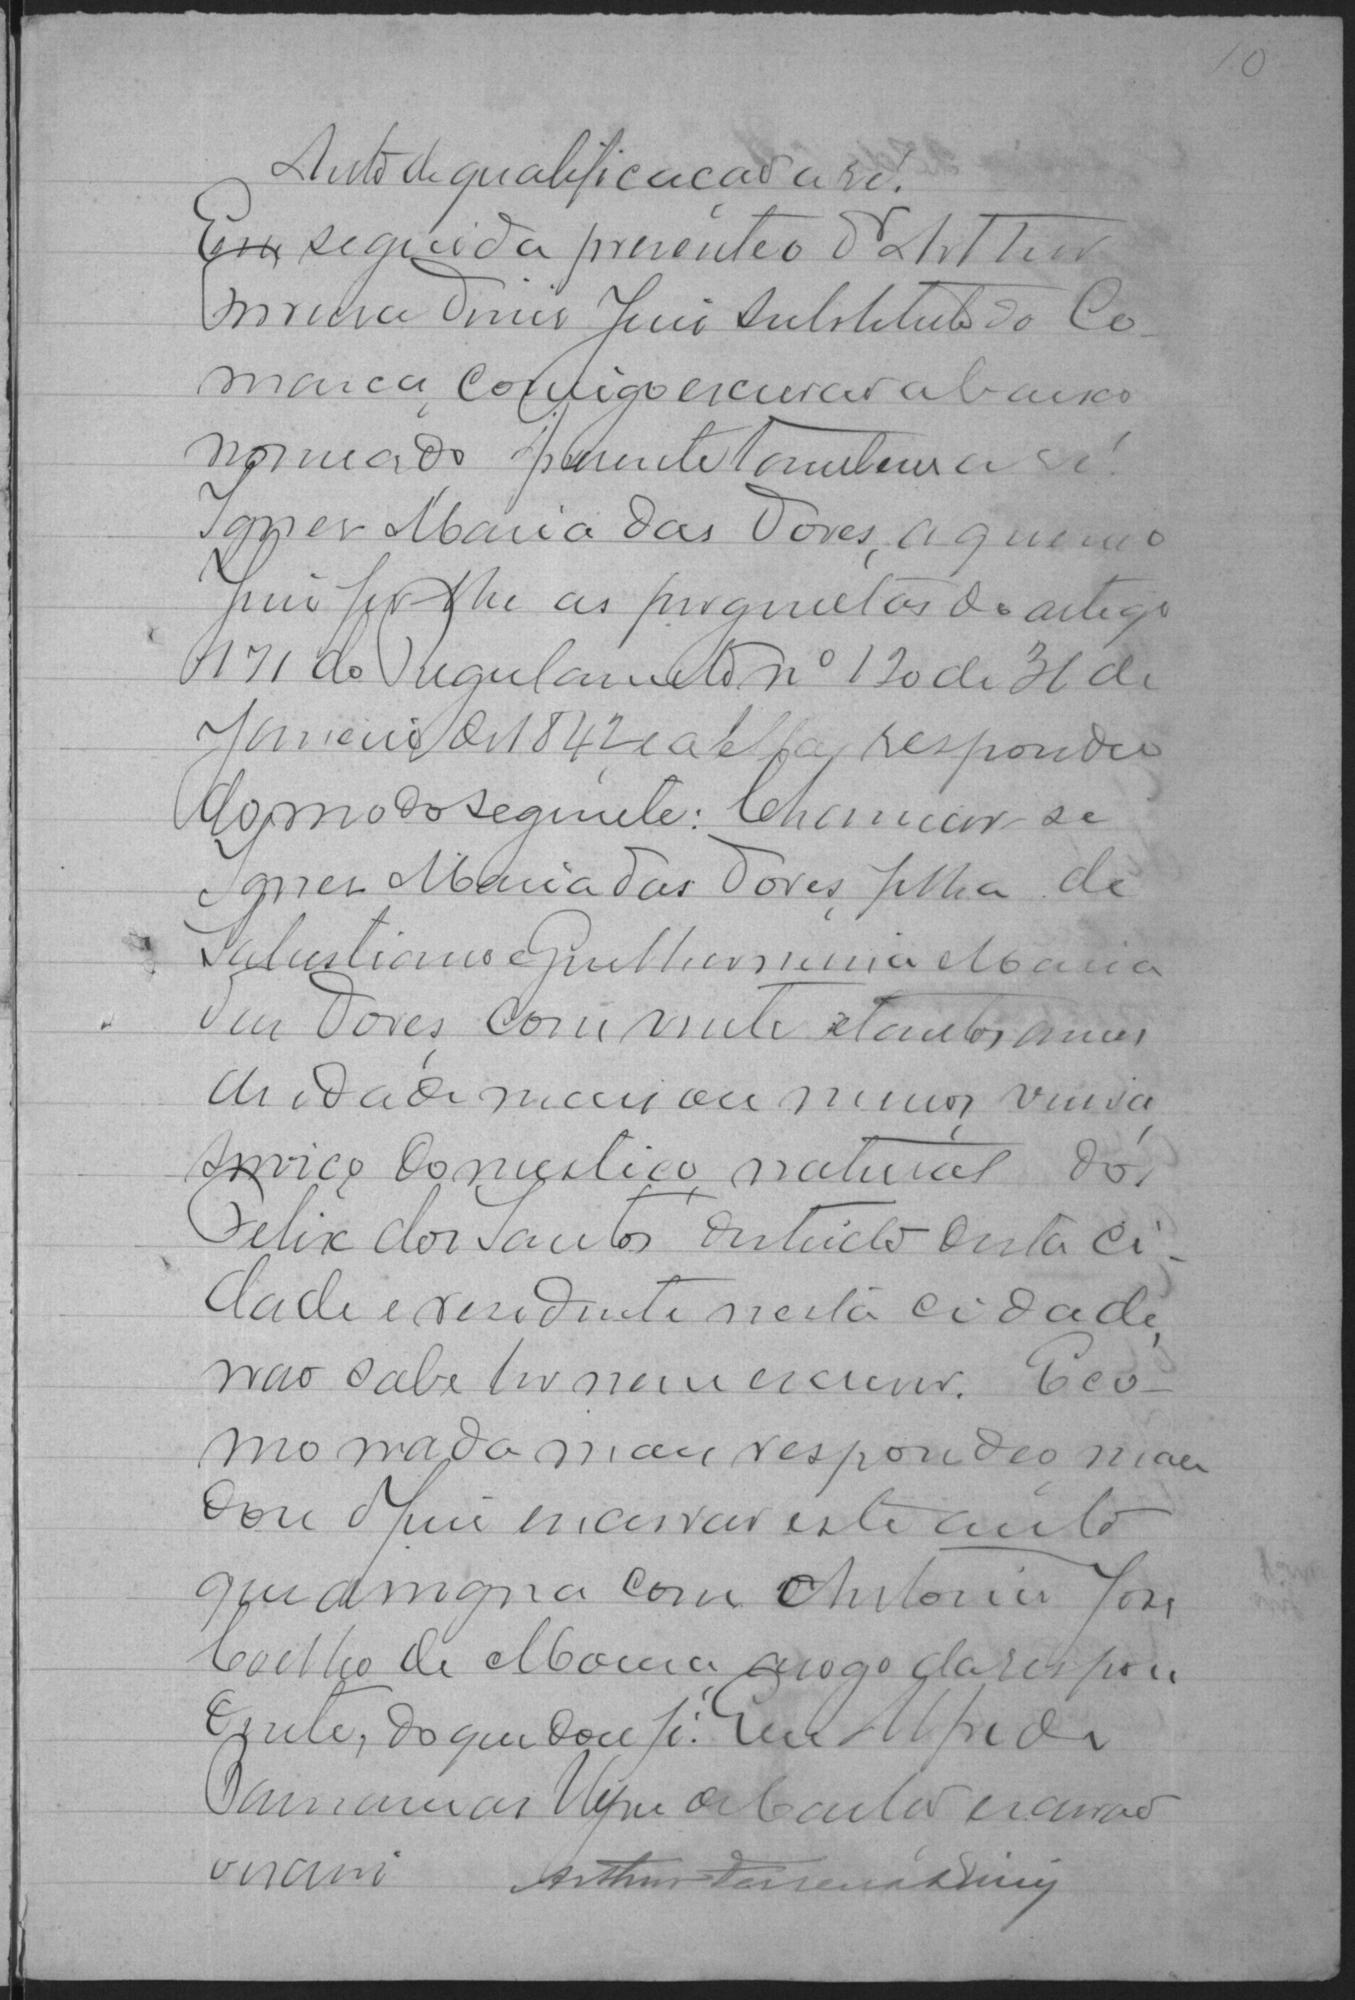 10
Auto de qualificação da ré.
Em seguida presente o Dr Arthur
Diniz Juiz Substituto da Co-
marca, comigo escrivão abaixo
nomeado presente tambem a ré
Ignez Maria das Dores, a quem o
Juiz fez lhe as perguntas do artigo
171 do Regulamento nº 120 de 31 de
Janeiro de 1842 e a ella respondeu
do modo seguinte: Chamar-se
Ignez Maria das Dores, filha de
Salustiano e Guilhermina Maria
das Dores, com vinte e tantos annos
de idade mais ou menos, viuva,
serviço domestico, natural do
Felix dos Santos districto desta ci-
dade e residente nesta cidade,
não sabe ler nem escrever. E co-
mo nada mais respondeo, man
dou o Juiz encerrar este auto
que assigna com Antonio José
Coelho de Moura, a rogo da respon
dente, do que dou fé. Eu Alfredo
de Castro escrivão
o escrevi
Arthur Diniz